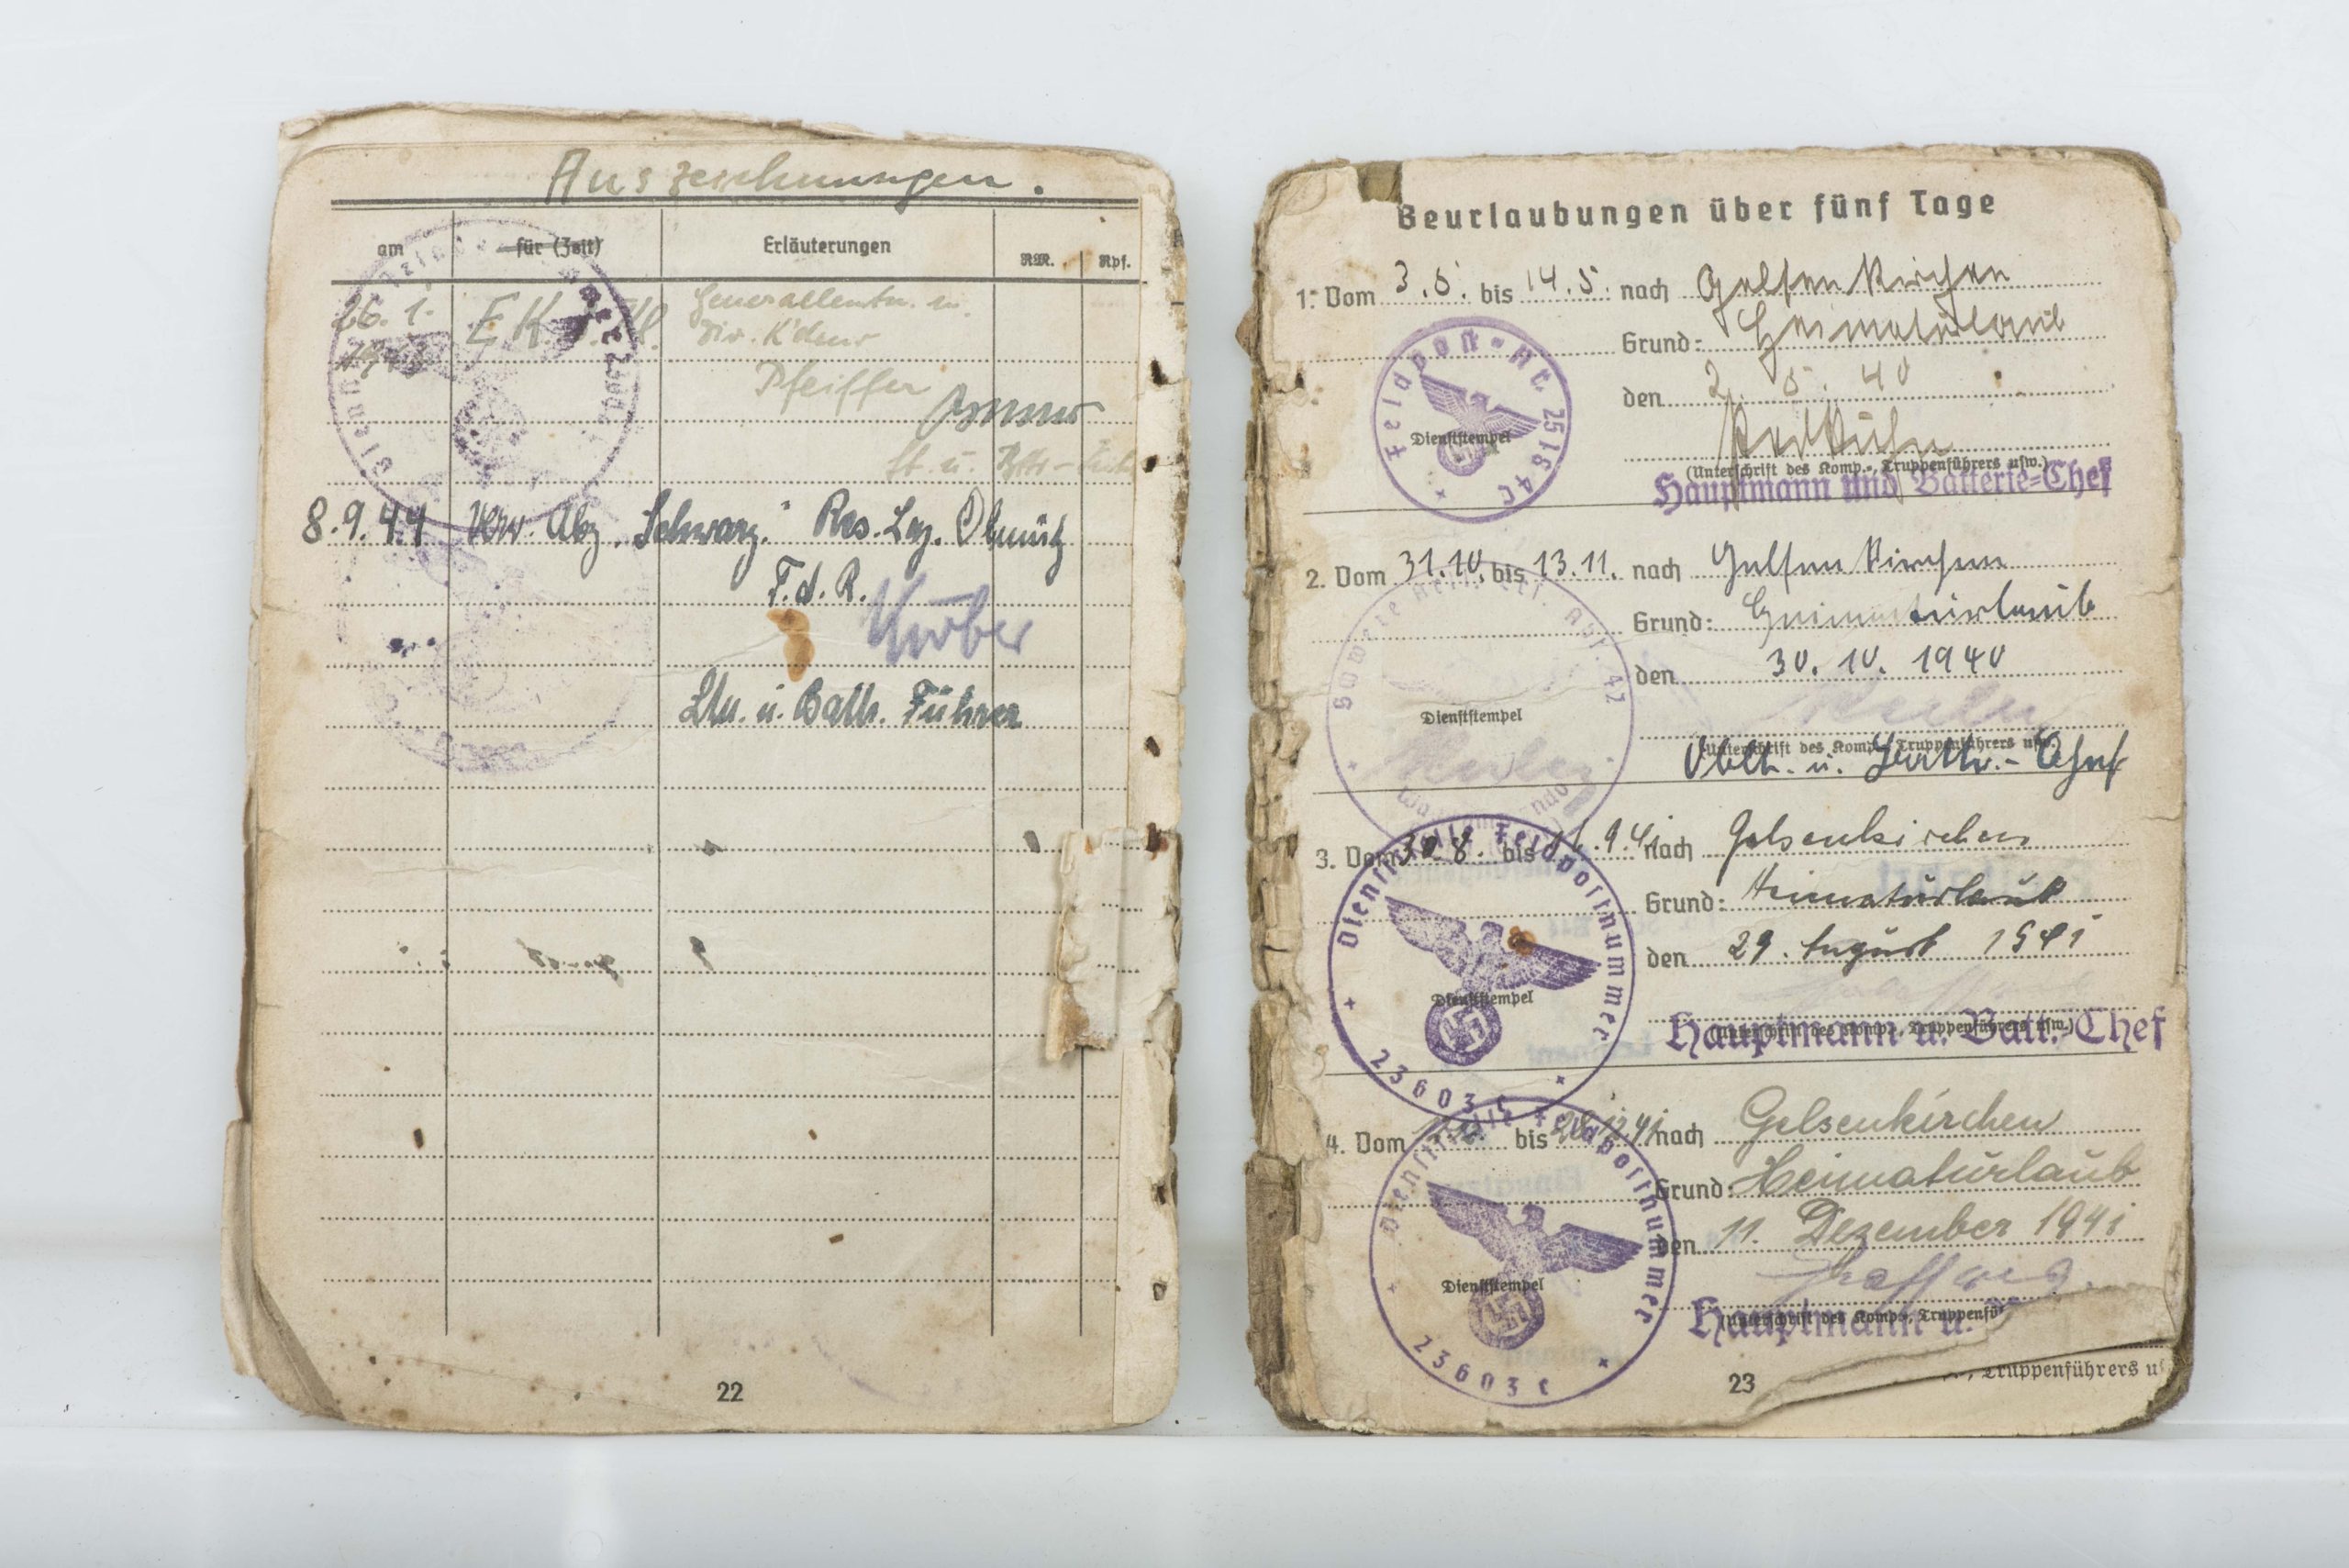 Auszeichnungen.
am für (Zeit) Erläuterungen RM. Rpf.
26. 1. E.K. II. Generalleutn. u.
1943 Div. K'deur
Pfeiffer
Lt. u. Bttr-
8.9.44 Verw. Abz. "Schwarz." Res. Laz. Olmütz
F. d. R.
Ltn. u. Battr. Führer
22
Beurlaubungen über fünf Tage
1. Vom 3.5. bis 14.5. nach Gelsenkirchen
Grund: Heimaturlaub
den 2. 5. 40
Feldpost-Nr. 25184C
Dienststempel
(Unterschrift des Komp.-, Truppenführers usw.)
Hauptmann und Batterie=Chef
2. Vom 31.10. bis 13.11. nach Gelsenkirchen
Grund: Heimaturlaub
den 30. 10. 1940
Schwere Artillerie Abt. 42
Dienststempel
(Unterschrift des Komp.-, Truppenführers usw.)
Oblt. u. Battr.-Chef
3. Vom 30.8. bis 9.41 nach Gelsenkirchen
Grund: Heimaturlaub
den 29. August 1941
Dienststelle Feldpostnummer 23603 C
Dienststempel
(Unterschrift des Komp.-, Truppenführers usw.)
Hauptmann u. Batt.-Chef
4. Vom bis nach Gelsenkirchen
Grund: Heimaturlaub
den 11. Dezember 1941
Dienststelle Feldpostnummer 23603 C
Dienststempel
(Unterschrift des Komp.-, Truppenfü
Hauptmann u.
, Truppenführers us
23